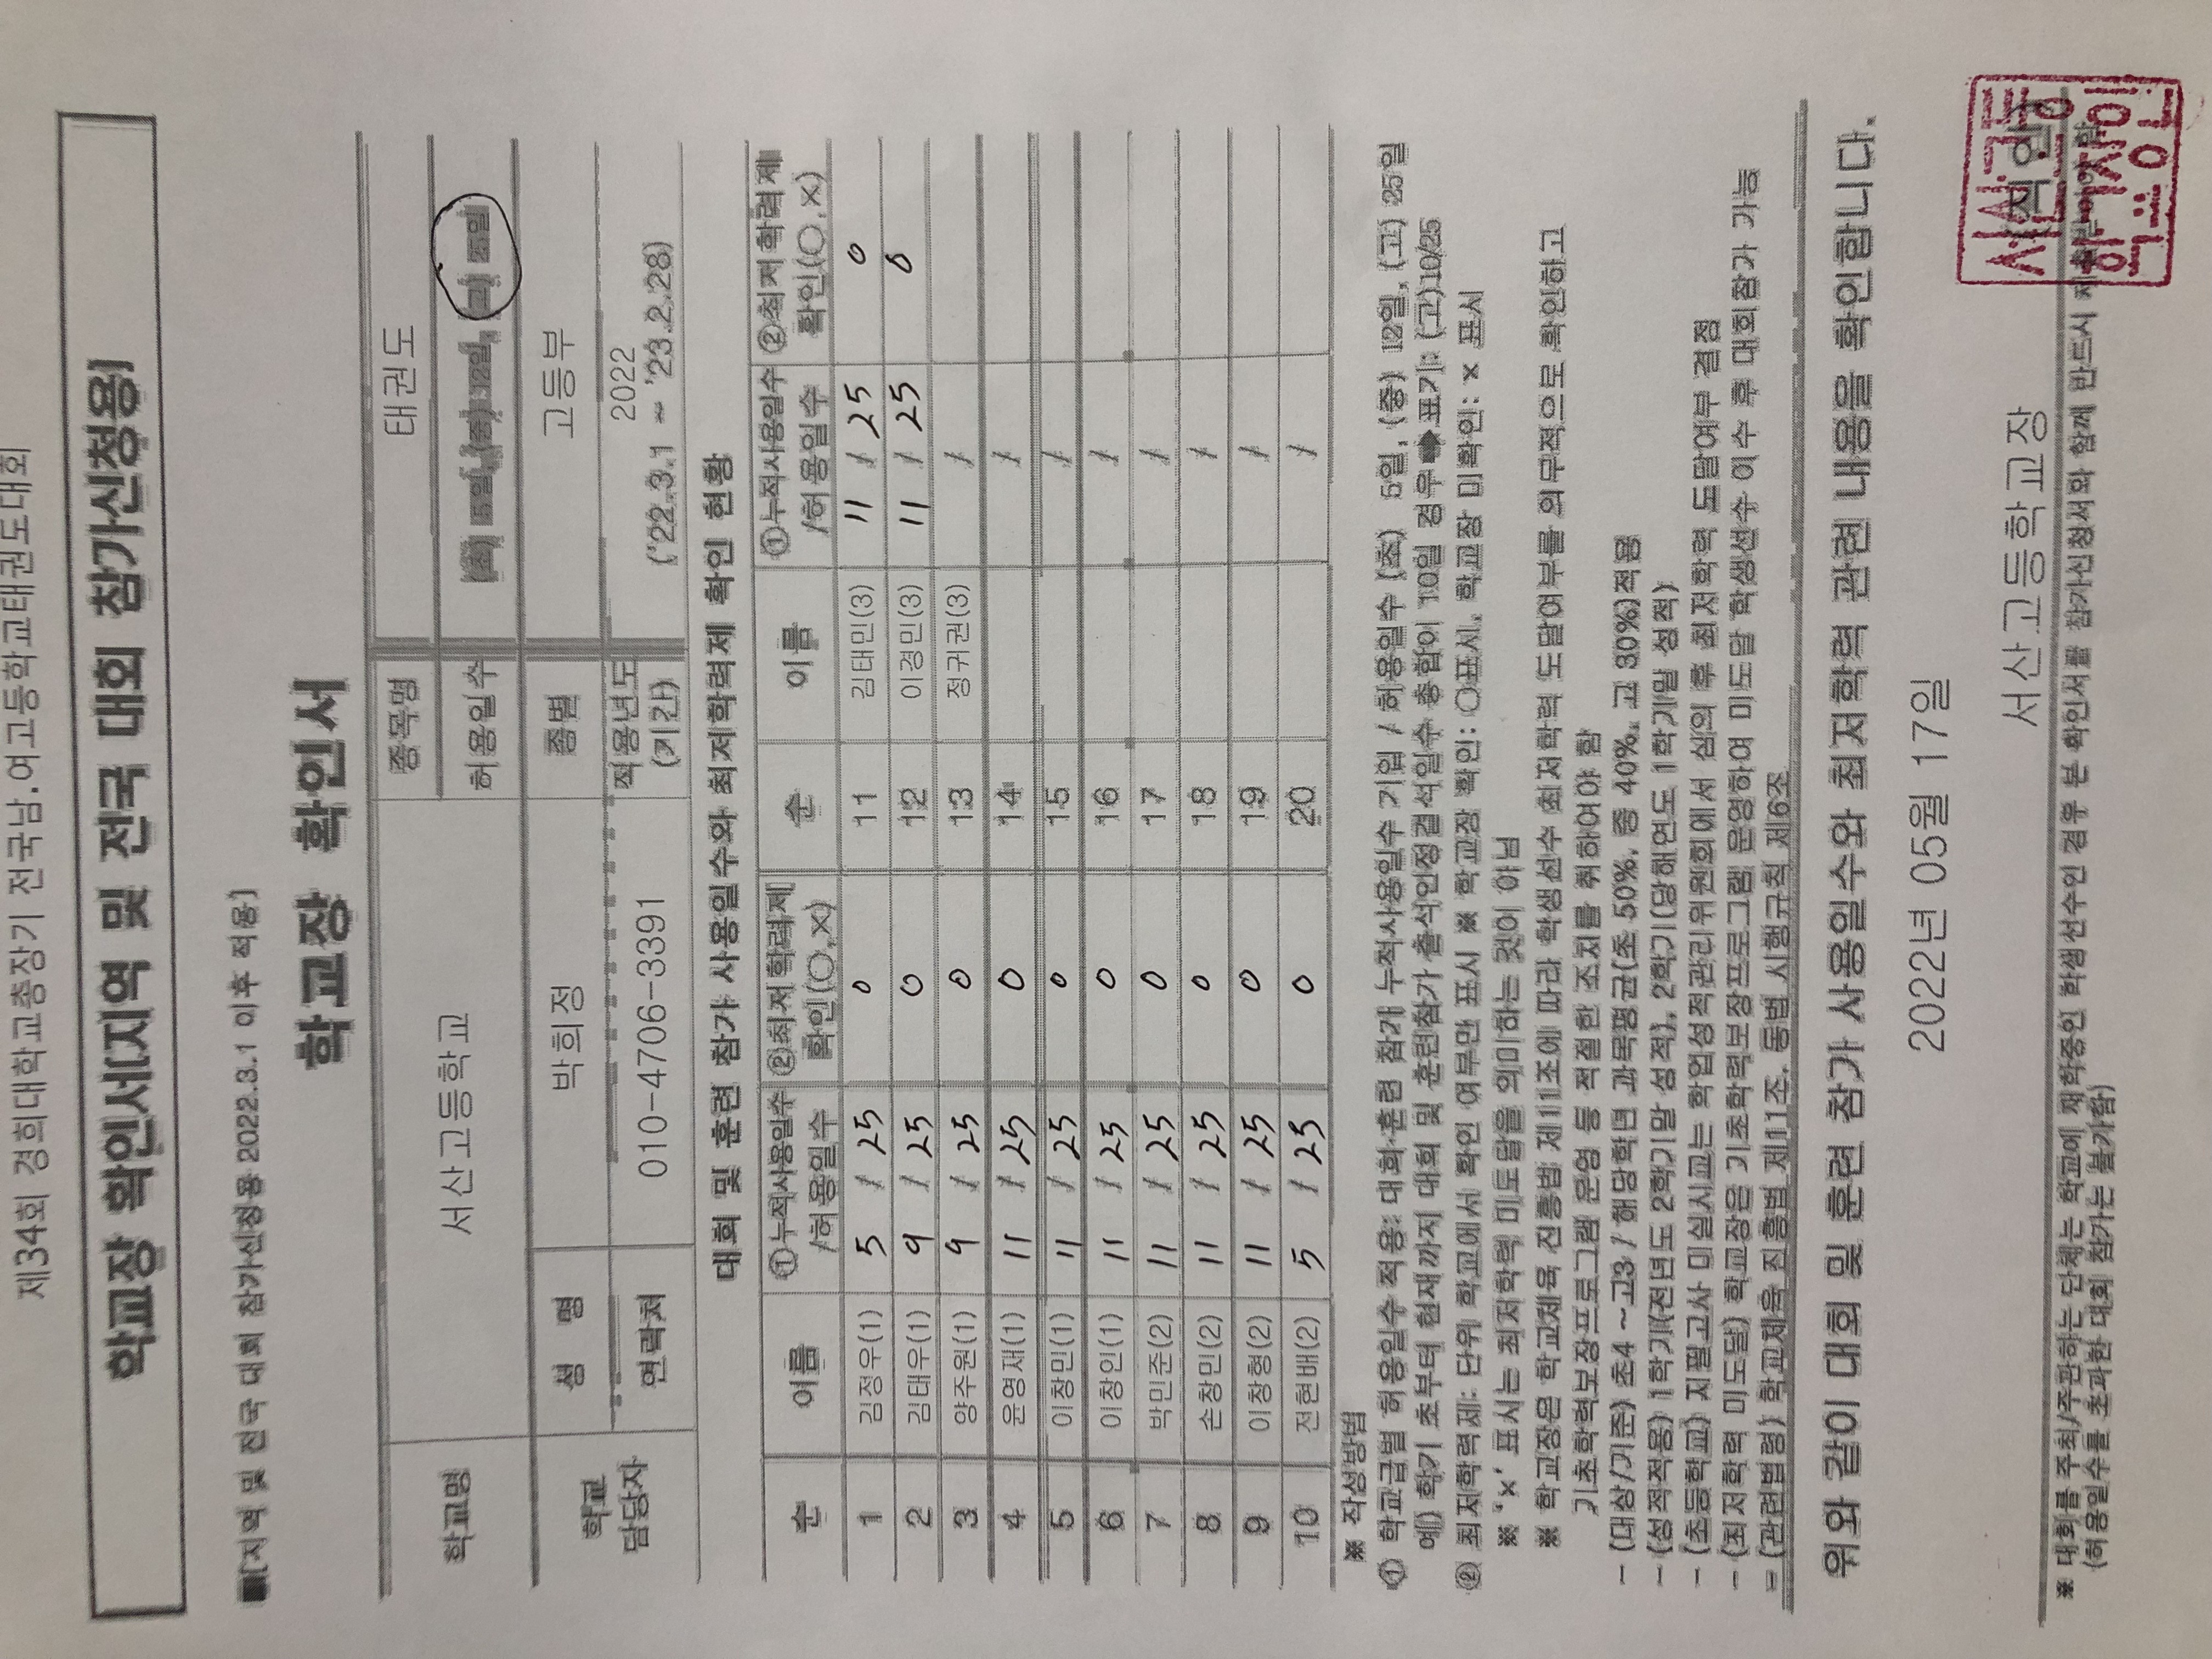 제34회 경희대학교총장기 전국남.여고등학교태권도대회
학교장 확인서(지역 및 전국 대회 참가신청용)
■(지역 및 전국 대회 참가신청용 2022.3.1 이후 적용)
학교장 확인서
학교명 서산고등학교 종목명 태권도
허용일수 (초) 5일, (중) 12일, (고) 25일
학교 담당자 성 명 박희정 종별 고등부
연락처 010-4706-3391 적용년도 (기간) 2022 ('22.3.1 ~ '23.2.28)
대회 및 훈련 참가 사용일수와 최저학력제 확인 현황
순 이름 ①누적사용일수 /허용일수 ②최저학력제 확인(○,×) 순 이름 ①누적사용일수 /허용일수 ②최저학력제 확인(○,×)
1 김정우(1) 5 / 25 0 11 김태민(3) 11 / 25 0
2 김태우(1) 9 / 25 0 12 이경민(3) 11 / 25 0
3 양주원(1) 9 / 25 0 13 정귀권(3) /
4 윤영재(1) 11 / 25 0 14 /
5 이창민(1) 11 / 25 0 15 /
6 이창인(1) 11 / 25 0 16 /
7 박민준(2) 11 / 25 0 17 /
8 손창민(2) 11 / 25 0 18 /
9 이창형(2) 11 / 25 0 19 /
10 전현배(2) 5 / 25 0 20 /
※ 작성방법
① 학교급별 허용일수 적용: 대회·훈련 참가 누적사용일수 기입 / 허용일수 (초) 5일, (중) 12일, (고) 25일
예) 학기 초부터 현재까지 대회 및 훈련참가 출석인정결석일수 총합이 10일 경우 표기: (고)10/25
② 최저학력제: 단위 학교에서 확인 여부만 표시 ※ 학교장 확인: ○표시, 학교장 미확인: × 표시
※ '×' 표시는 최저학력 미도달을 의미하는 것이 아님
※ 학교장은 학교체육 진흥법 제11조에 따라 학생선수 최저학력 도달여부를 의무적으로 확인하고
기초학력보장프로그램 운영 등 적절한 조치를 취하여야 함
- (대상/기준) 초4 ~ 고3 / 해당학년 과목평균(초 50%, 중 40%, 고 30%)적용
- (성적적용) 1학기(전년도 2학기말 성적), 2학기(당해연도 1학기말 성적)
- (초등학교) 지필고사 미실시교는 학업성적관리위원회에서 심의 후 최저학력 도달여부 결정
- (최저학력 미도달) 학교장은 기초학력보장프로그램 운영하여 미도달 학생선수 이수 후 대회참가 가능
- (관련법령) 학교체육 진흥법 제11조, 동법 시행규칙 제6조
위와 같이 대회 및 훈련 참가 사용일수와 최저학력 관련 내용을 확인합니다.
2022년 05월 17일
서산고등학교장 (직인)
※ 대회를 주최/주관하는 단체는 학교에 재학중인 학생선수인 경우 본 확인서를 참가신청서와 함께 반드시
(허용일수를 초과한 대회 참가는 불가함)